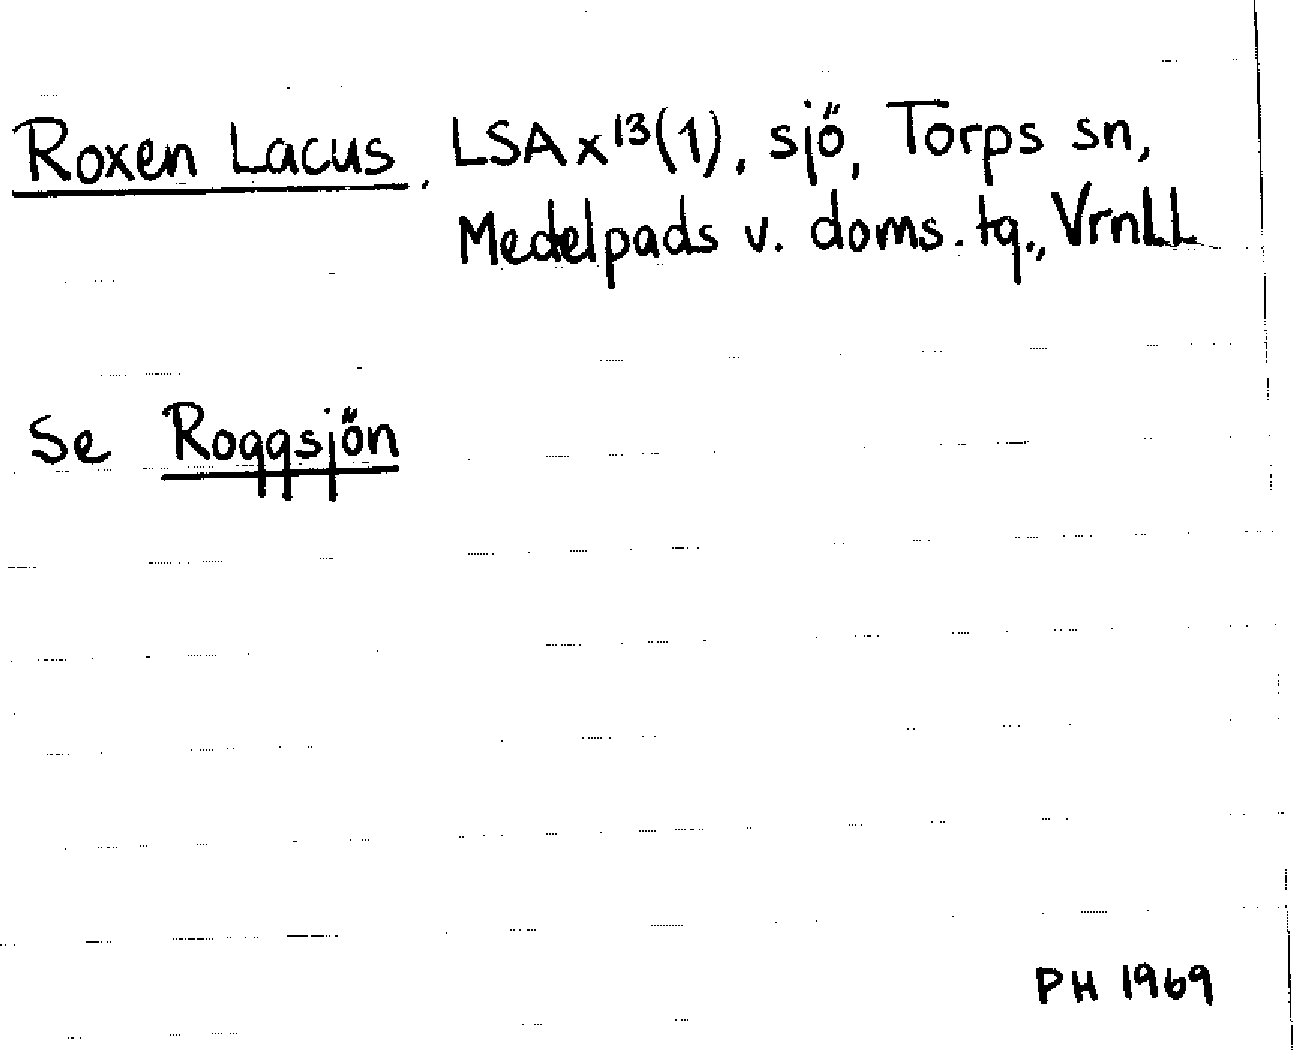 Roxen Lacus, LSA x¹³(1), sjö, Torps sn,
Medelpads v. doms. tg., VrnLL
Se Roggsjön
PH 1969